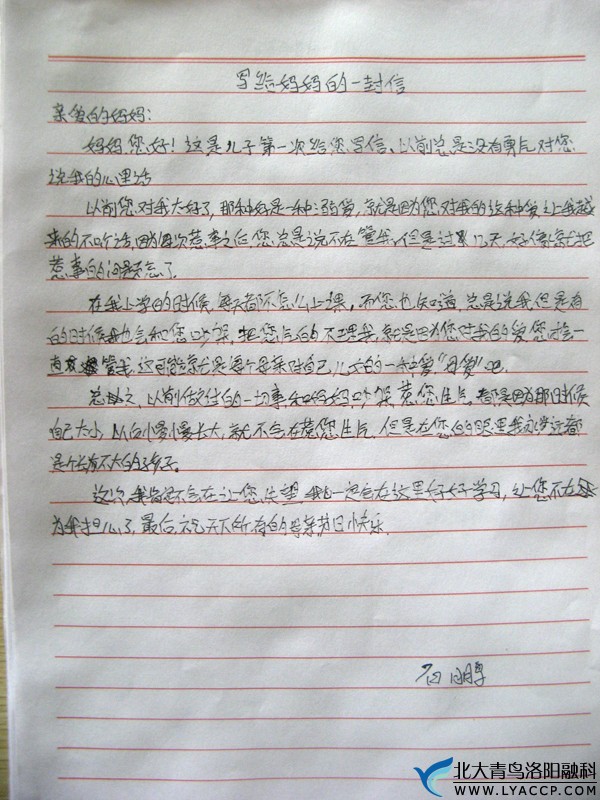 写给妈妈的一封信
亲爱的妈妈:
妈妈您好!这是儿子第一次给您写信、以前总是没有勇气对您
说我的心里话
以前您对我太好了,那种好是一种溺爱,就是因为您对我的这种爱让我越
来的不听话,因为每次惹事之后,您总是说不在管我,但是过几天,好像就把
惹事的问题忘了
在我上学的时候,每天都不怎么上课,而您也知道总是说我但是有
的时候我也会和您吵架,把您气的不理我,就是因为您对我的爱您才会一
直管我,这可能就是每个母亲对自己儿女的一种爱"母爱"吧.
总之,以前做过的一切事和妈妈吵架惹您生气,都是因为那时候
自己太小,从自慢慢长大,就不会在惹您生气,但是在您的眼里我永远都
是个长不大的孩子.
这次,我不会在让您失望,我一定会在这里好好学习,让您不在
为我担心了,最后,祝天下所有的母亲节日快乐.
石鹏
北大青鸟洛阳融科
WWW.LYACCP.COM